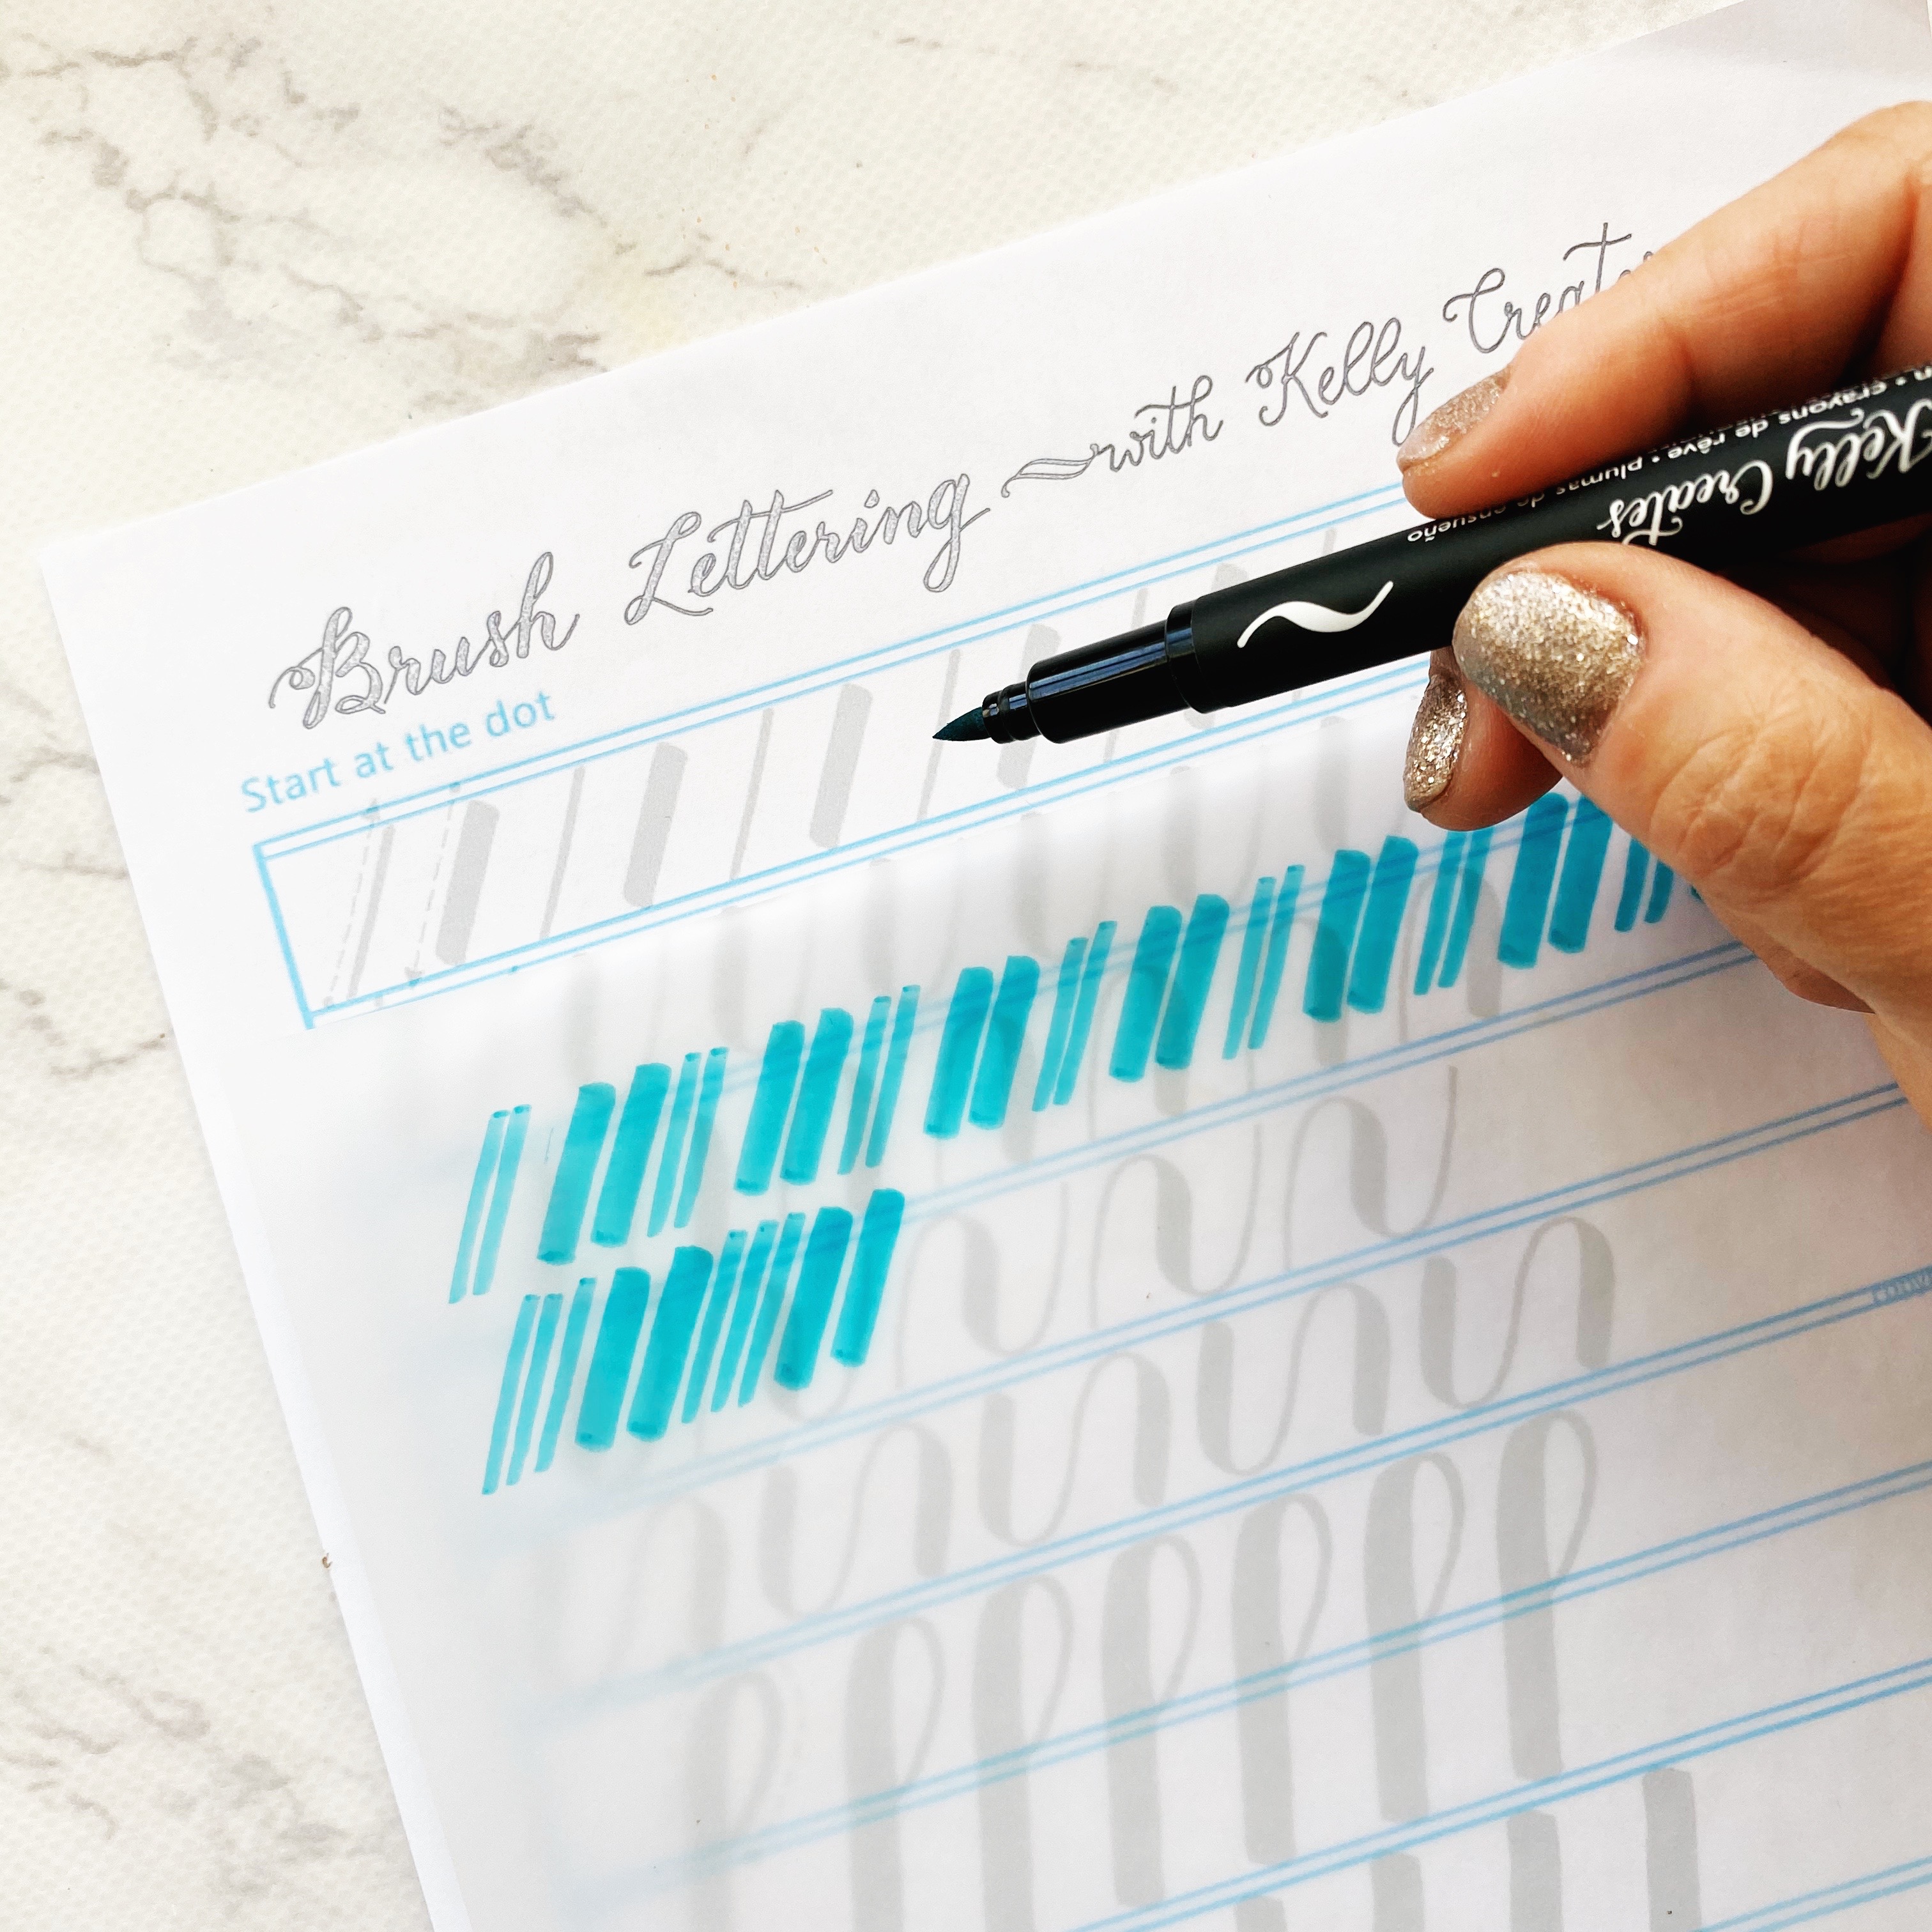 Brush Lettering with Kelly
Start at the dot
crayons de rêve • plumas de ensueño
Kelly Creates